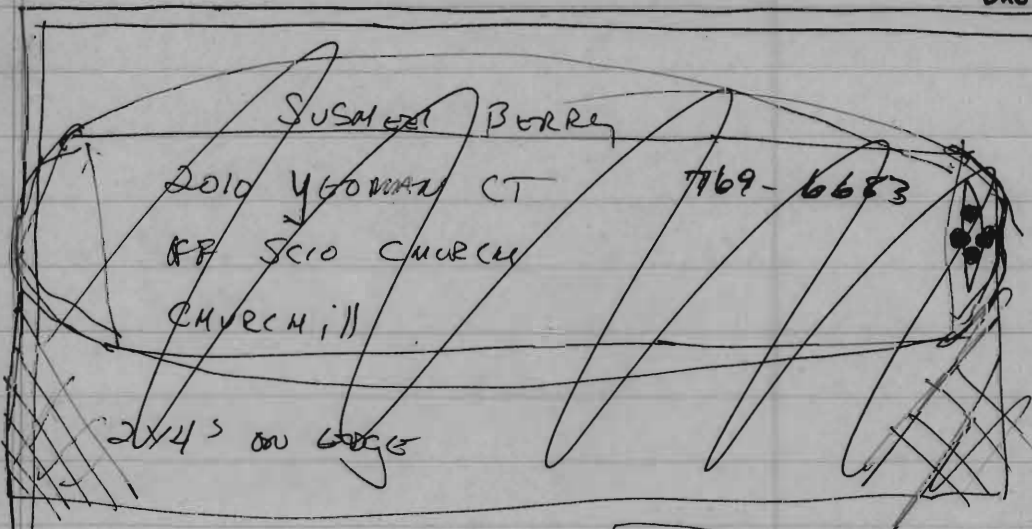 BERRY
2010 YEOMAN CT 769-6683
OFF SCIO CHURCH
CHURCHill
2x4's ON EDGE